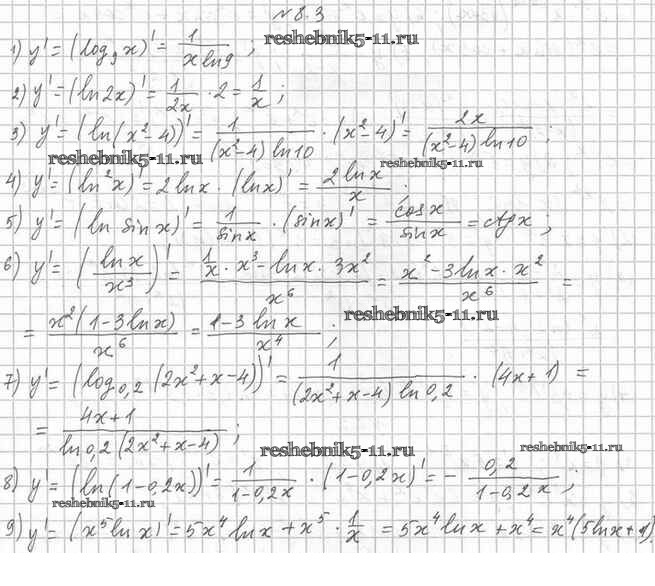 № 8.3
1) y' = (log₉x)' = 1/(x ln9) ;
reshebnik5-11.ru
2) y' = (ln2x)' = 1/2x · 2 = 1/x ;
3) y' = (ln(x²-4))' = 1/((x²-4) ln10) · (x²-4)' = 2x/((x²-4) ln10) ;
reshebnik5-11.ru reshebnik5-11.ru
4) y' = (ln²x)' = 2 lnx · (lnx)' = 2 lnx/x .
5) y' = (ln sinx)' = 1/sinx · (sinx)' = cosx/sinx = ctgx ;
6) y' = (lnx/x³)' = (1/x · x³ - lnx · 3x²)/x⁶ = (x² - 3lnx · x²)/x⁶ =
= x²(1-3lnx)/x⁶ = (1-3 lnx)/x⁴ ;
reshebnik5-11.ru
7) y' = (log₀,₂(2x²+x-4))' = 1/((2x²+x-4) ln0,2) · (4x+1) =
= (4x+1)/(ln0,2 (2x²+x-4)) ;
reshebnik5-11.ru reshebnik5-11.ru
8) y' = (ln(1-0,2x))' = 1/(1-0,2x) · (1-0,2x)' = - 0,2/(1-0,2x) ;
reshebnik5-11.ru
9) y' = (x⁵lnx)' = 5x⁴lnx + x⁵ · 1/x = 5x⁴lnx + x⁴ = x⁴(5lnx+1)